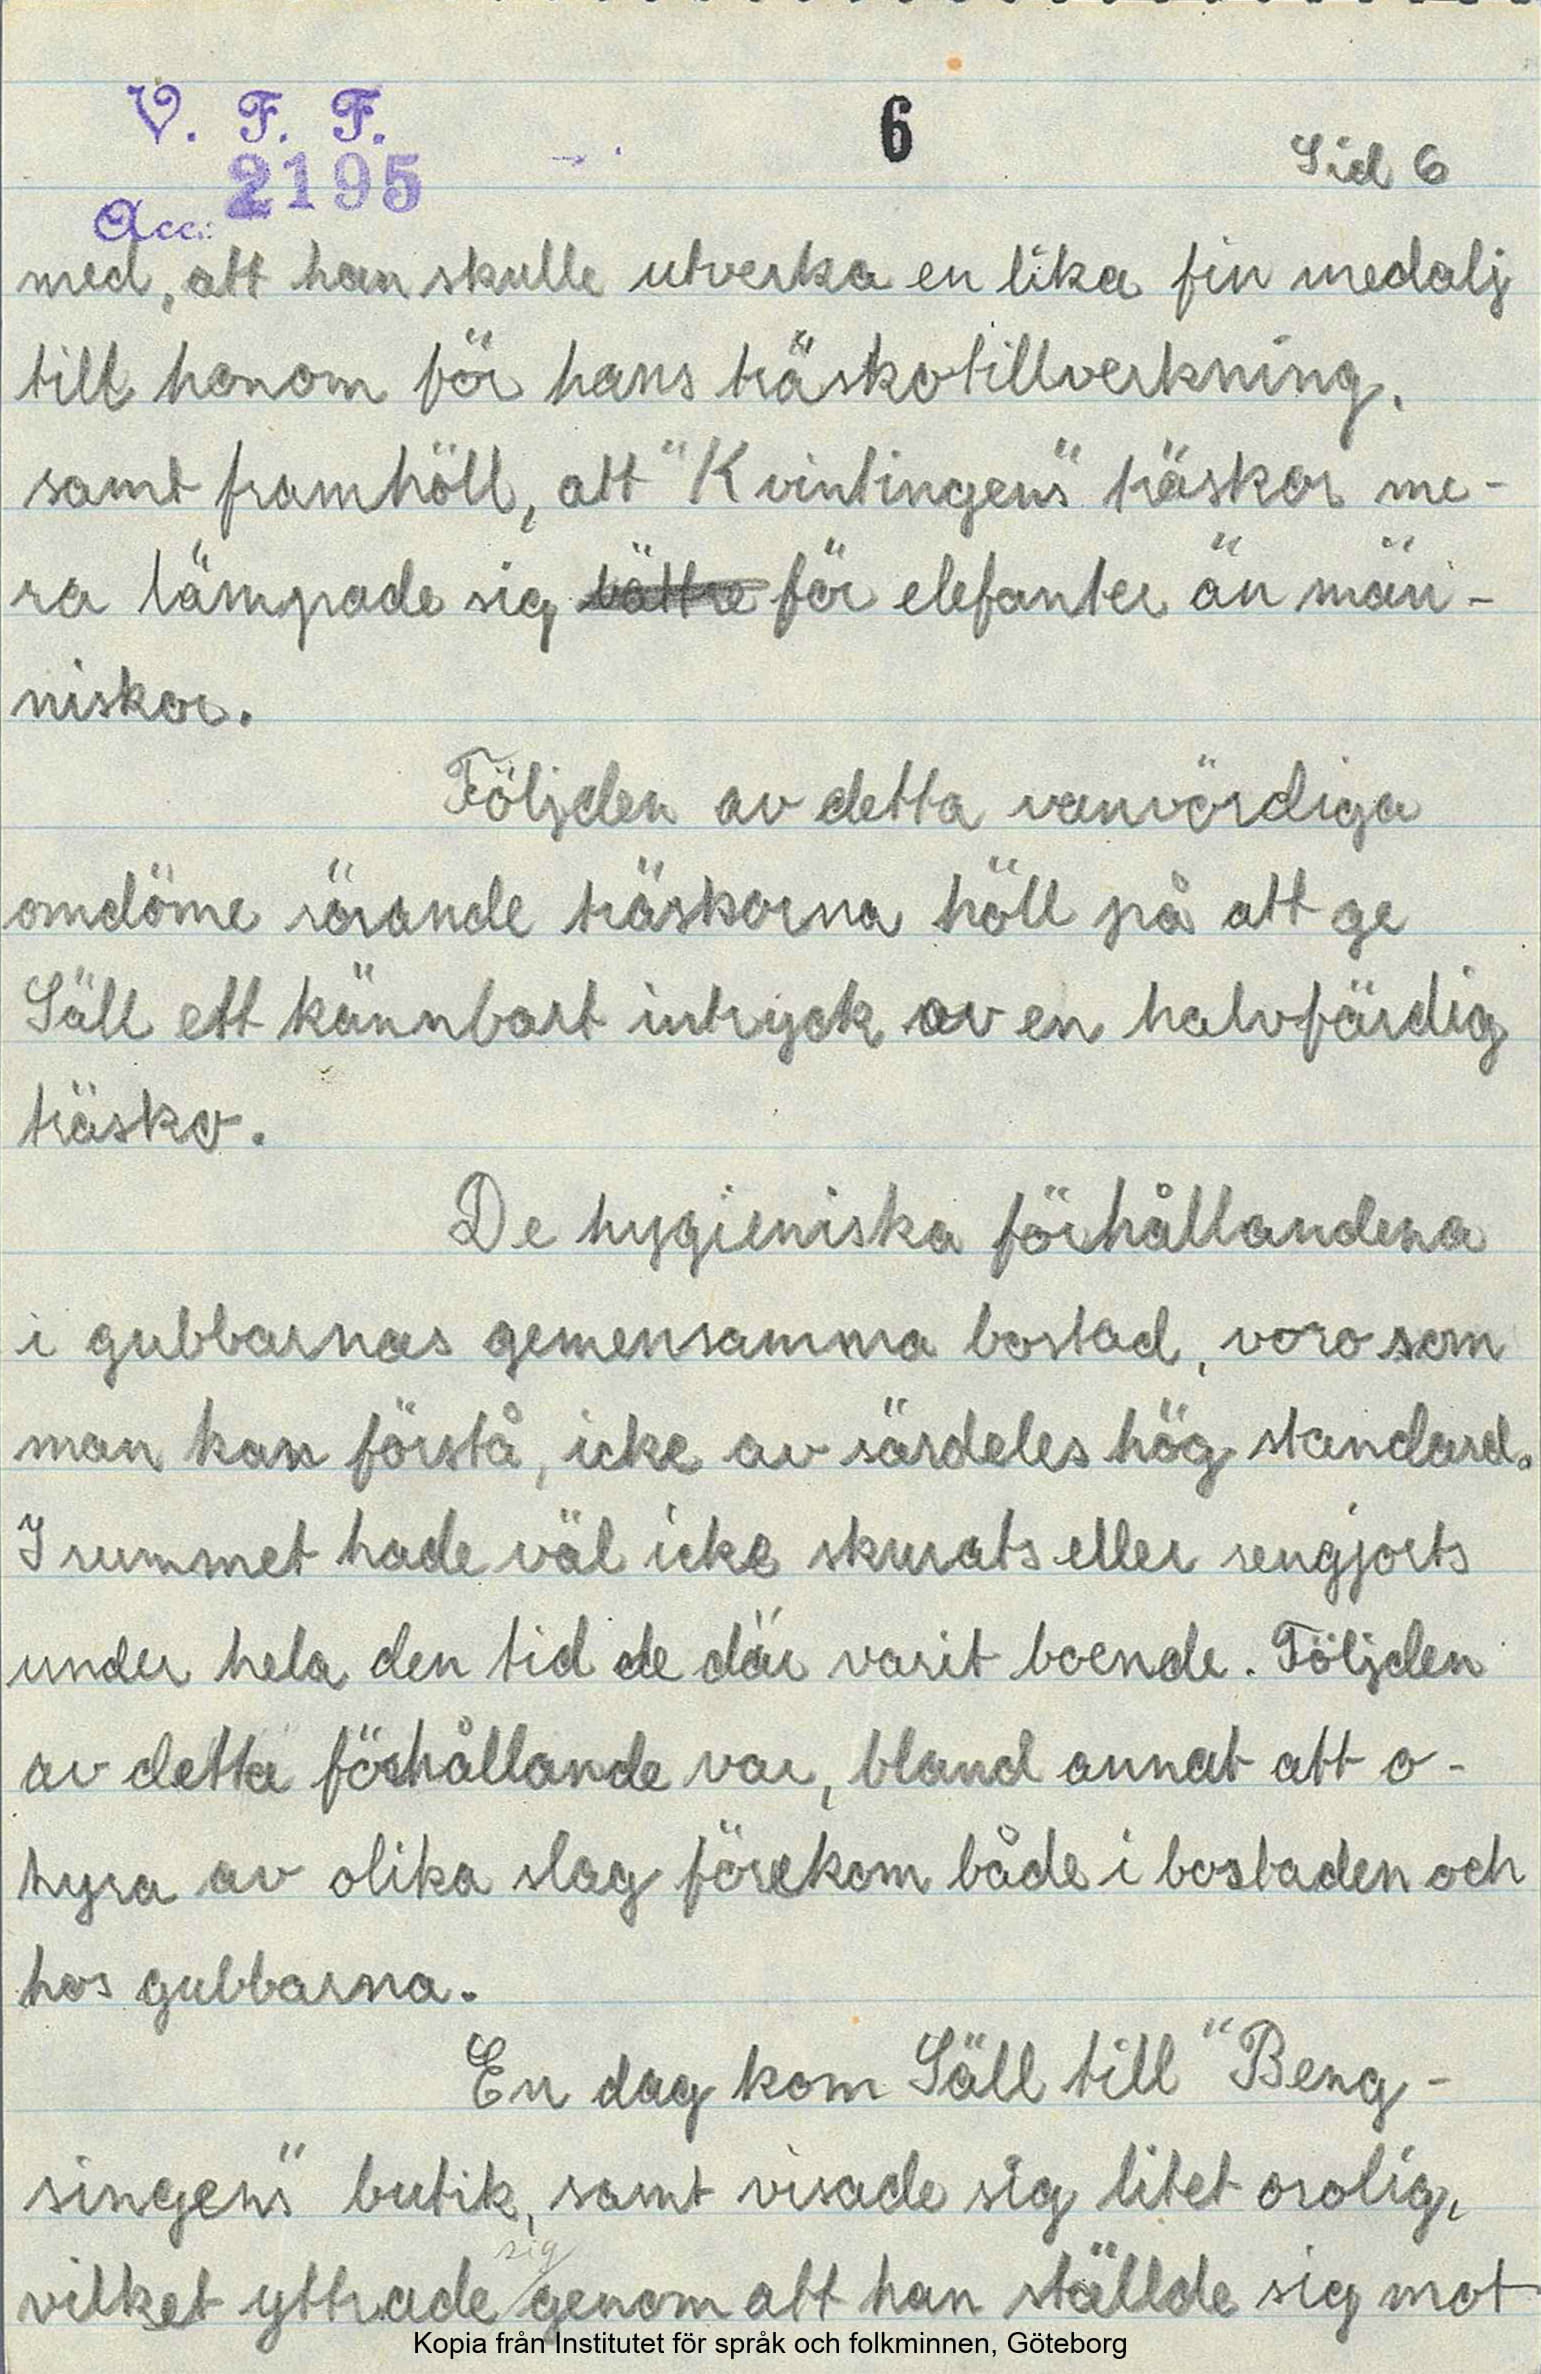 V. F. F.
6
Sid 6
Acc: 2195
med, att han skulle utverka en lika fin medalj
till honom för hans träskotillverkning,
samt framhöll, att "Kvintingens" träskor me-
ra lämpade sig bättre för elefanter än män-
niskor.
Följden av detta vanvördiga
omdöme rörande träskorna höll på att ge
Säll ett kännbart intryck av en halvfärdig
träsko.
De hygieniska förhållandena
i gubbarnas gemensamma bostad, voro som
man kan förstå, icke av särdeles hög standard.
I rummet hade väl icke skurats eller rengjorts
under hela den tid de där varit boende. Följden
av detta förhållande var, bland annat att o-
hyra av olika slag förekom både i bostaden och
hos gubbarna.
En dag kom Säll till "Beng-
singens" butik, samt visade sig litet orolig,
sig
vilket yttrade genom att han ställde sig mot
Kopia från Institutet för språk och folkminnen, Göteborg